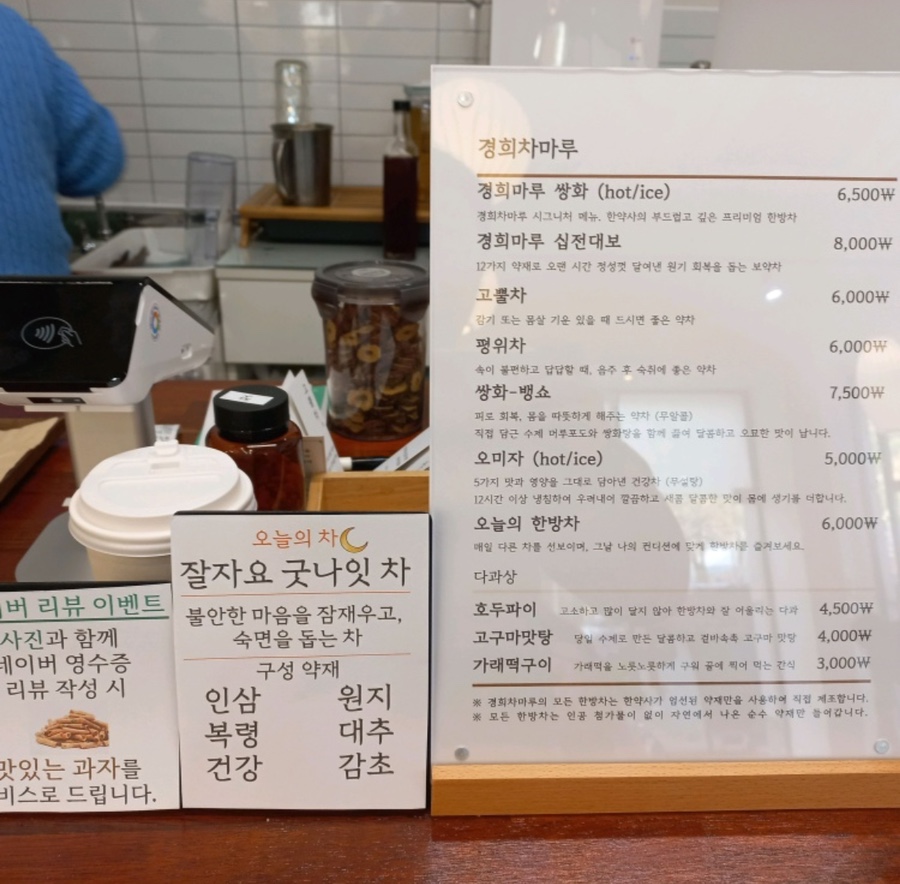 경희차마루
경희마루 쌍화 (hot/ice) 6,500₩
경희차마루 시그니처 메뉴, 한약사의 부드럽고 깊은 프리미엄 한방차
경희마루 십전대보 8,000₩
12가지 약재로 오랜 시간 정성껏 달여낸 원기 회복을 돕는 보약차
고뿔차 6,000₩
감기 또는 몸살 기운 있을 때 드시면 좋은 약차
평위차 6,000₩
속이 불편하고 답답할 때, 음주 후 숙취에 좋은 약차
쌍화-뱅쇼 7,500₩
피로 회복, 몸을 따뜻하게 해주는 약차 (무알콜)
직접 담근 수제 머루포도와 쌍화탕을 함께 끓여 달콤하고 오묘한 맛이 납니다.
오미자 (hot/ice) 5,000₩
5가지 맛과 영양을 그대로 담아낸 건강차 (무설탕)
12시간 이상 냉침하여 우려내어 깔끔하고 새콤 달콤한 맛이 몸에 생기를 더합니다.
오늘의 한방차 6,000₩
매일 다른 차를 선보이며, 그날 나의 컨디션에 맞게 한방차를 즐겨보세요.
다과상
호두파이 고소하고 많이 달지 않아 한방차와 잘 어울리는 다과 4,500₩
고구마맛탕 당일 수제로 만든 달콤하고 겉바속촉 고구마 맛탕 4,000₩
가래떡구이 가래떡을 노릇노릇하게 구워 꿀에 찍어 먹는 간식 3,000₩
※ 경희차마루의 모든 한방차는 한약사가 엄선된 약재만을 사용하여 직접 제조합니다.
※ 모든 한방차는 인공 첨가물이 없이 자연에서 나온 순수 약재만 들어갑니다.
오늘의 차
잘자요 굿나잇 차
불안한 마음을 잠재우고,
숙면을 돕는 차
구성 약재
인삼 원지
복령 대추
건강 감초
버 리뷰 이벤트
사진과 함께
네이버 영수증
리뷰 작성 시
맛있는 과자를
비스로 드립니다.